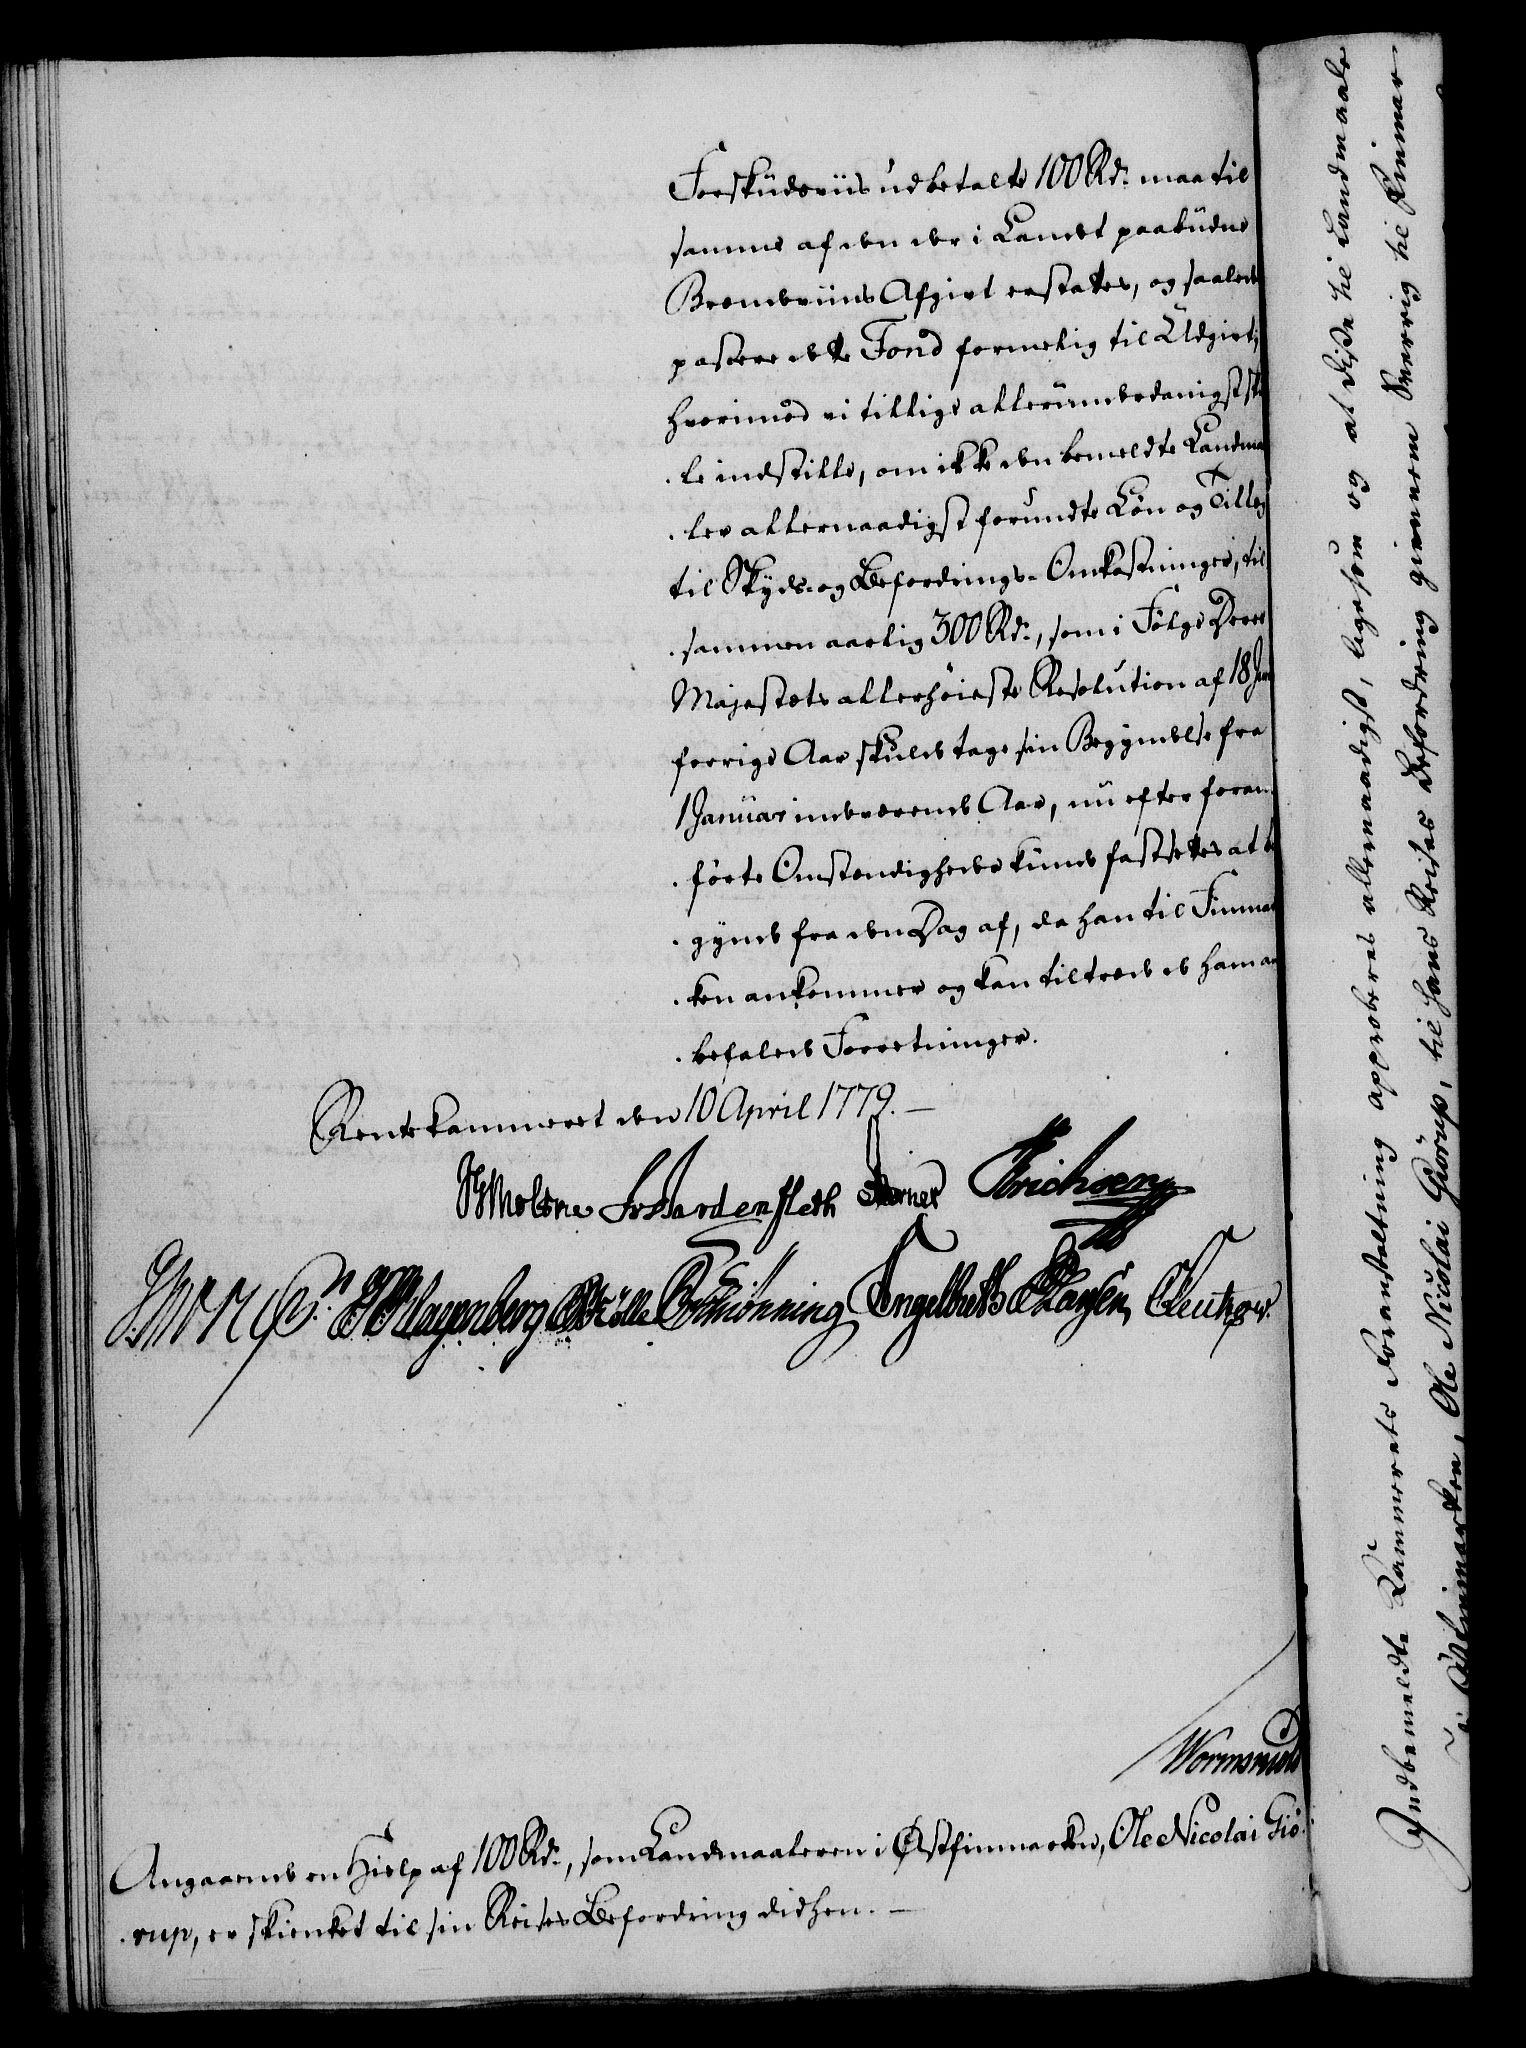 Forskudsviis udbetalte 100 Rdr. maa til
samme af den der i Landet paabudne
Brændeviins Afgivt erstattes, og saaledes
passere dette Fond formelig til Udgivt;
hvorimod vi tillige allerunderdanigst skul
le indstille, om ikke den bemeldte Landmaa
ler allernaadigst forundte Løn og Tillæg
til Skyds- og Befordrings-Omkostninger, til
sammen aarlig 300 Rdr., som i Følge Deres
Majestæts allerhøieste Resolution af 18 Jun
forrige Aar skulde tage sin Begyndelse fra
1 Januar indeværende Aar, nu efter foran
førte Omstændigheder kunde fastsettes at be
gynde fra den Dag af, da han til Finmar
ken ankommer og kan tiltræde de ham an
befalede Forretninger.
Rentekammeret den 10 April 1779.
Moltke JvHardenfleth Berner Erichsen
Klagenberg Schiönning Engelbreth Hansen
Wormskiold
Angaaende en Hielp af 100 Rdr., som Landmaaleren i Østfinmarken, Ole Nicolai Giö
rup, er skienket til sin Reises Befordring didhen.
Indbemeldte Kammerets Foranstaltning approberes allernaadigst, ligesom og at disse til Landmaale
i Østfinmarken, Ole Nicolai Giörup, til hans Reises Befordring giennem Sverrig til Finmar